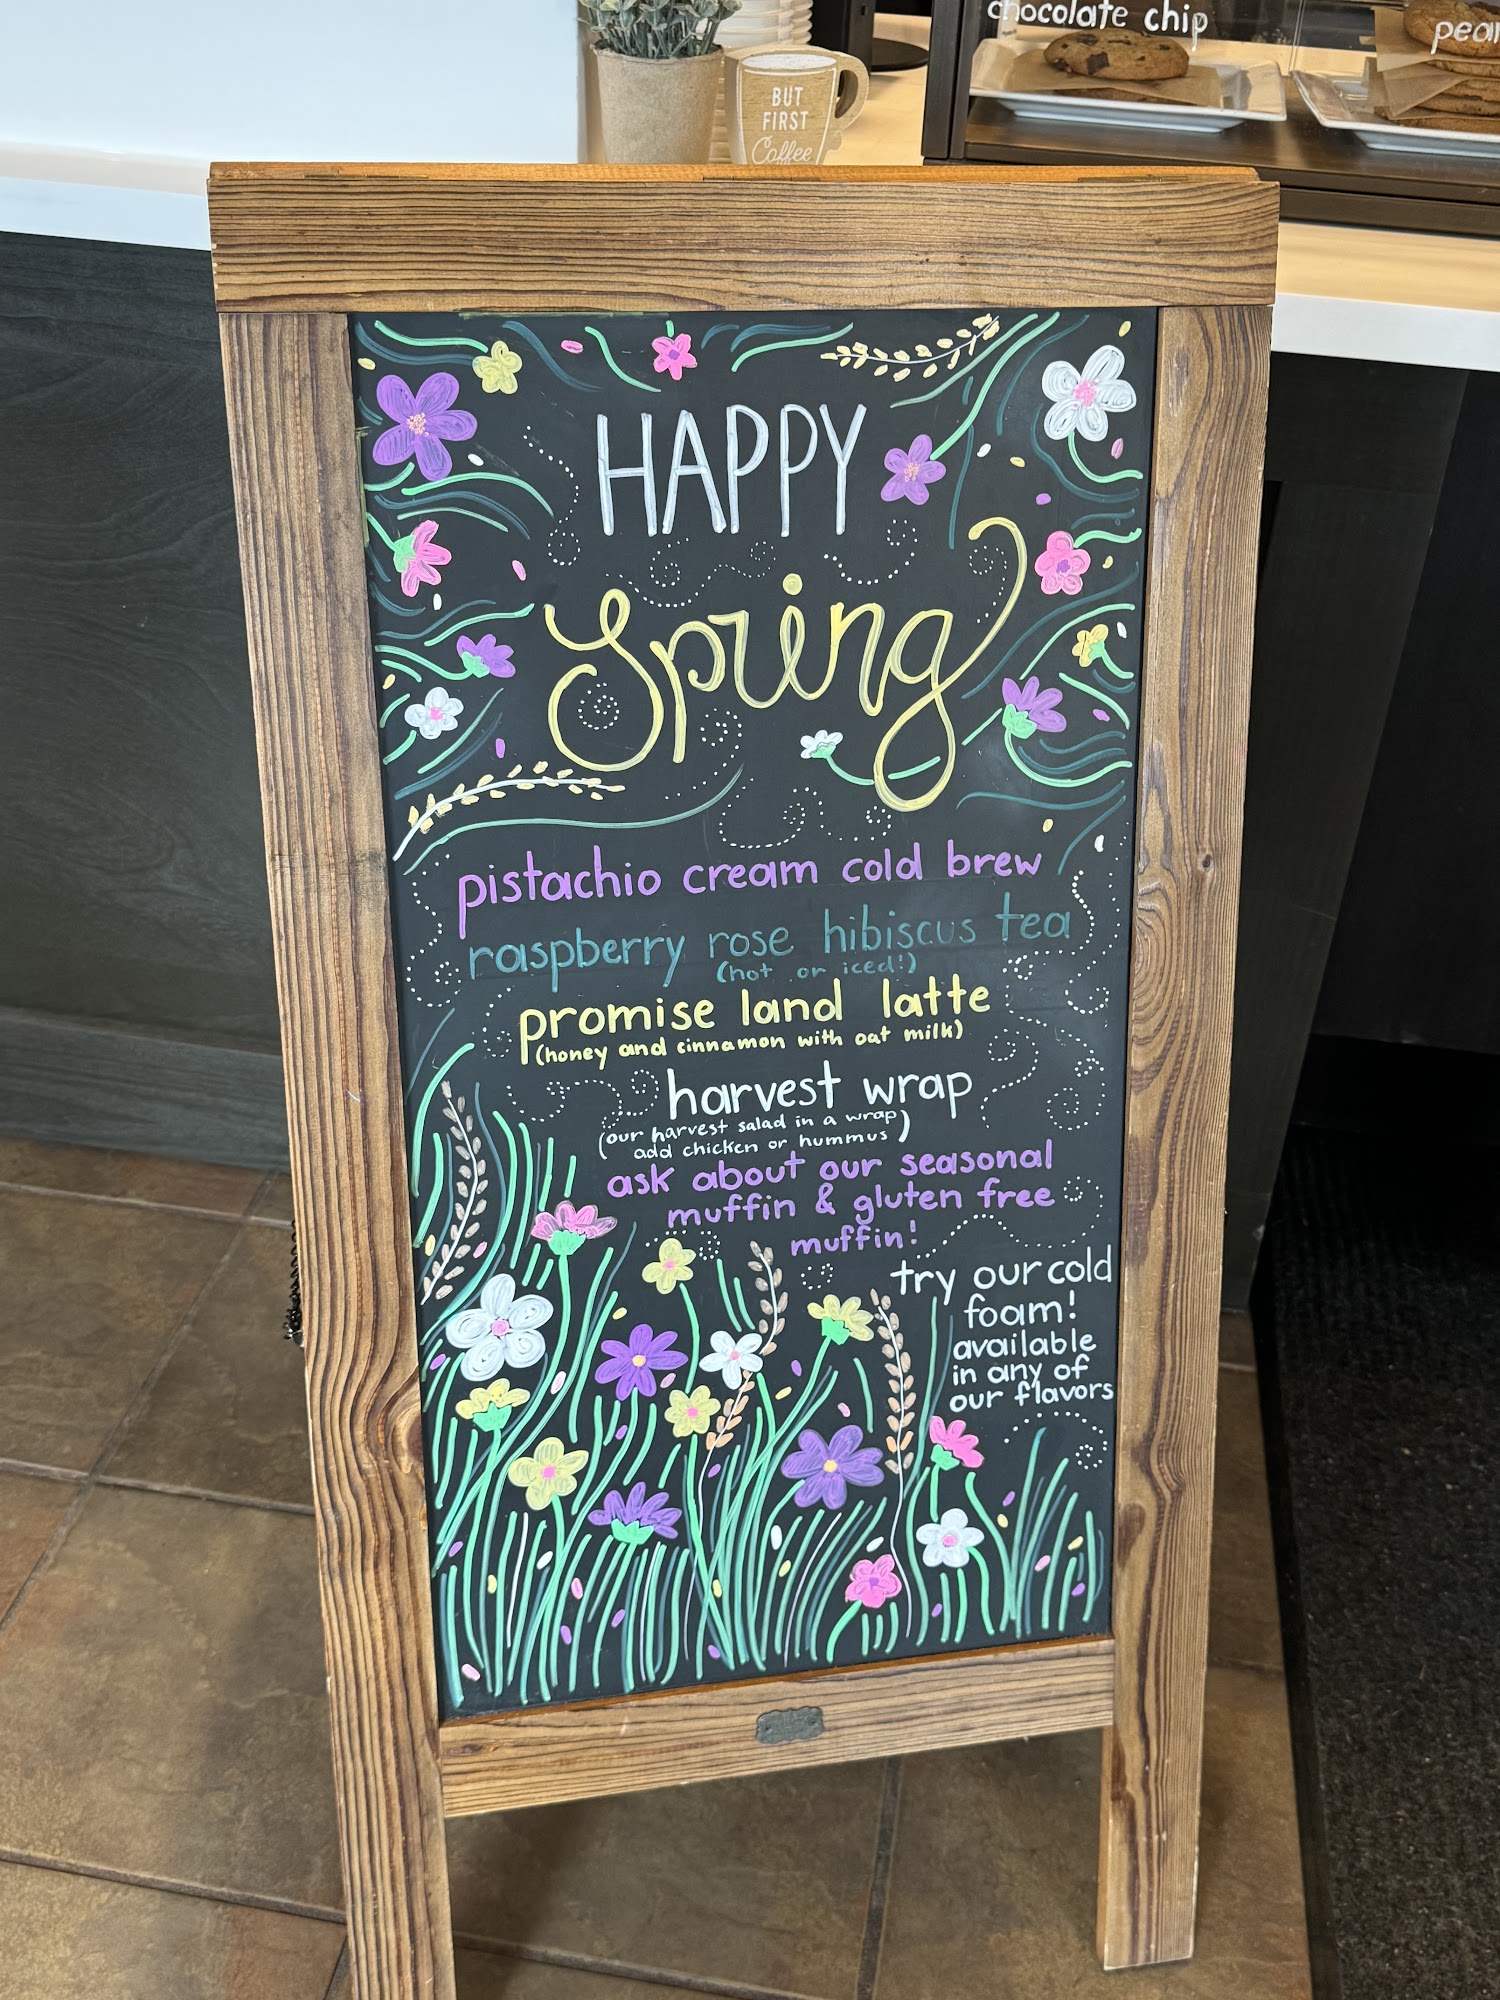 chocolate chip
BUT
FIRST
Coffee
HAPPY
Spring
pistachio cream cold brew
raspberry rose hibiscus tea
(hot or iced!)
promise land latte
(honey and cinnamon with oat milk)
harvest wrap
(our harvest salad in a wrap)
add chicken or hummus
ask about our seasonal
muffin & gluten free
muffin!
try our cold
foam!
available
in any of
our flavors